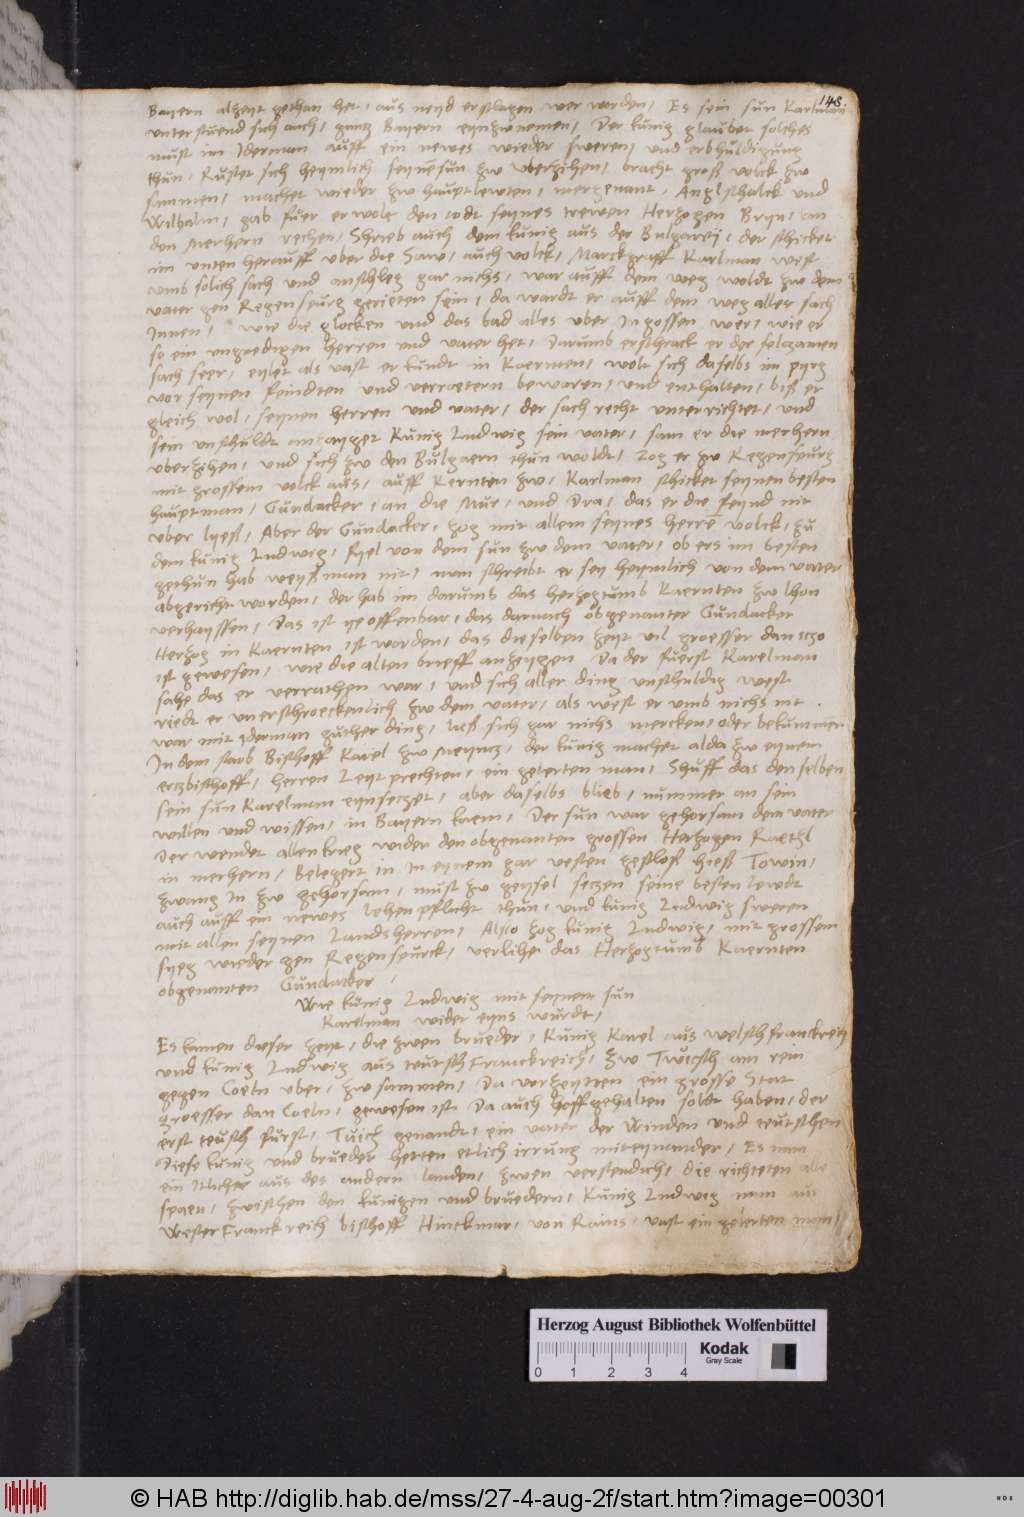 148.
Bayern alzeyt gethan het, aus neyd erschlagen wer worden, Es sein sun Karlman
unterstuend sich auch, gantz Bayern eynzwnemen, Der kunig glaubet solches
must im Iderman auff ein newes wieder sweren, und erbhuldigung
thun, Rustet sich heymlich seynen sun zw uberzihen, bracht groß volck zw
samen, machet wieder zw hauptlewten, Englschalck und
Wilhalm, gab fuer er wolt den todt seynes trewen Herzogen Bryn, an
den merhern rechen, Schrieb auch dem kunig aus der Bulgarey, der schicket
im unten herauff uber die Saw, auch volck, Marckgraff Karlman west
umb solich sach und anschleg gar nichs, war auff dem weg woldt zw dem
vater gen Regenspurg gerieten sein, da wardt er auff dem weg aller sach
Innen, wie die glocken und das bad alles uber In gossen wer, wie er
so ein ungnedigen herren und vater het, Darumb erschrack er der selczamen
sach seer, eylet als vast er kundt in Kaernten, wolt sich daselbs im pyrg
vor seynen feindten und verraetern bewaren, und enthalten, biß er
gleich wol, seynen herren und vater, der sach recht unterrichtet, und
sein unschuldt anzayget Kunig Ludwig sein vater, sam er die merhern
uberzihen, und sich zw den Bulgaern thun woldt, Zog er zw Regenspurg
mit grossem volck aus, auff Kernten zw, Karlman schicket seynen besten
hauptman, Gundacker, an die Mur, und Dra, das er die feynd nit
uber ließ, Aber der Gundacker, zog mit allem seynes herre volck, zu
dem kunig Ludwig, fyel von dem sun zw dem vater, ob ers im besten
gethun hab weyß man nit, man schreibt er sey heymlich von dem vater
abgericht worden, der hab im darumb das herzogtumb Kaernten zw lhon
verhayssen, Das ist ye offenbar, das darnach obgenanter Gundacker
Herzog in Kaernten ist worden, das dieselben zeyt vil groesser dan iczo
ist gewesen, wie die alten brieff anzeygen Da der fuerst Karelman
sahe das er verrathen war, und sich aller ding unschuldig west
riedt er unerschroeckenlich zw dem vater, als west er umb nichs nit
war mit Iderman guther ding, ließ sich gar nichs mercken, oder bekummer
In dem starb Bischoff Karel zw Meyncz, der kunig machet alda zw eynem
erczbischoff, herren Leyt prechten, ein gelerten man, Schuff das denselben
sein sun Karelman eynseczet, aber daselbs blieb, nummer an sein
willen und wissen, in Bayern kaem, Der sun war gehorsam dem vater
Der wendet allen krieg wider den obgenanten grossen Herzogen Raetzl
in merhern, Belegert in In eynem gar vesten geschloß hieß Towin,
zwang In zw gehorsam, must zw geysel seczen seine besten lewdt
auch auff ein newes lehenpflicht thun, und kunig Ludwig sweren
mit allen seynen Landsherren, Also zog kunig Ludwig, mit grossem
syeg wieder gen Regenspurck, verlihe das Herzogtumb Kaernten
obgenanten Gundacker,
Wie kunig Ludwig mit seynem sun
Karelman wider eyns wurdt,
Es kamen dieser zeyt, die zwen brueder, Kunig Karel aus welschfranckreich
und kunig Ludwig aus teutsch Franckreich, Zw Twitsch am rein
gegen Coeln uber, zw sammen, Da vorzeytten ein grosse Stat
groesser dan Coeln, gewesen ist, Da auch hoffgehalten soldt haben, der
erst teusch furst, Tuisch genandt, ein vater der Winden und teutschen
Diese kunig und brueder hetten etlich irrung miteynander, Es nam
ein Itlicher aus des andern landen, zwen verstendich, die richteten alle
spaen, zwischen den kunigen und bruedern, Kunig Ludwig nam aus
WesterFranckreich bischoff Hinckmar, von Rains, vast ein gelerten man,
Herzog August Bibliothek Wolfenbüttel
Kodak
Gray Scale
0 1 2 3 4
© HAB http://diglib.hab.de/mss/27-4-aug-2f/start.htm?image=00301